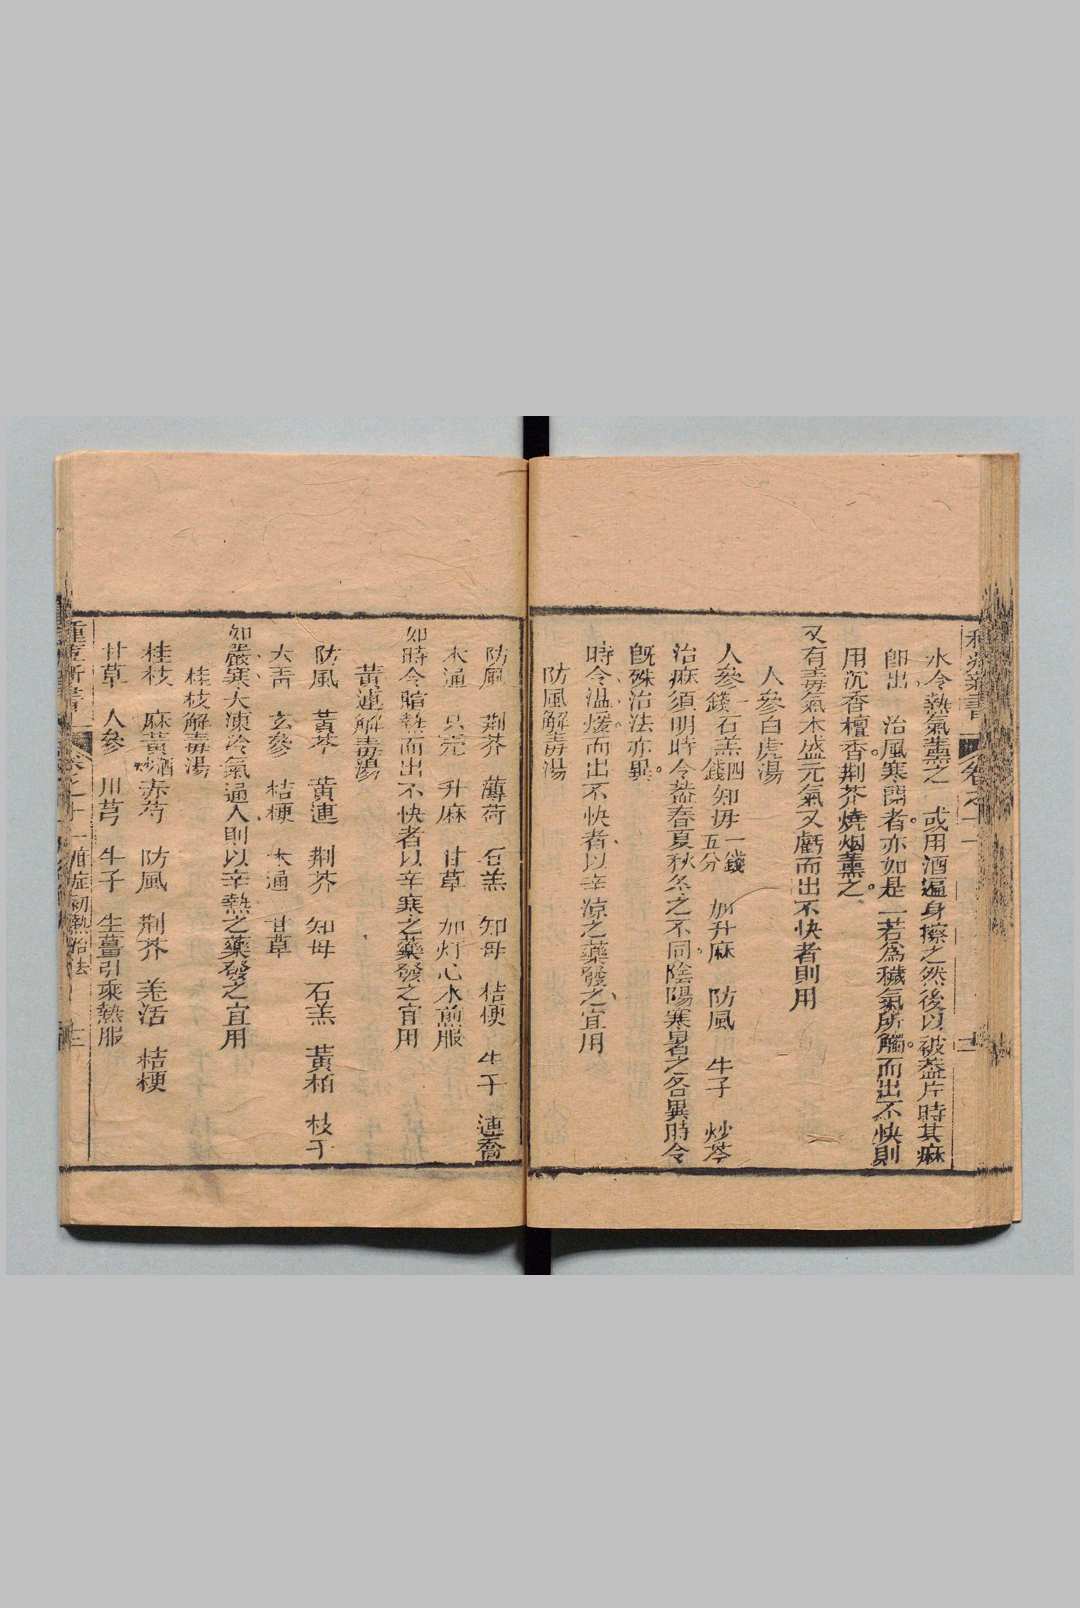 水令熱氣薰之　或用酒遍身擦之然後以被葢片時其麻
卽出　治風寒閉者亦如是一若為穢氣所觸而出不快則
用沉香檀香荆芥燒烟薰之
又有毒氣太盛元氣又虧而出不快者則用
人參白虎湯
人參一錢　石羔四錢　知毋一錢五分　加升麻　防風　牛子　炒芩
治麻須明時令葢春夏秋冬之不同陰陽寒暑之各異時令
旣殊治法亦異
時令温煖而出不快者以辛凉之藥發之宜用
防風解毒湯
防風　荆芥　薄荷　石羔　知母　桔便　牛子　連喬
木通　只売　升麻　甘草　加灯心水煎服
如時令暄熱而出不快者以辛寒之藥發之宜用
黃連解毒湯
防風　黃芩　黃連　荆芥　知母　石羔　黃柏　枝子
大靑　玄參　桔梗　木通　甘草
如嚴寒大凍冷氣逼人則以辛熱之藥發之宜用
桂枝解毒湯
桂枝　麻黃酒炒　赤芍　防風　荆芥　羌活　桔梗
甘草　人參　川芎　牛子　生薑引乘熱服
種痘新書　卷之十一　麻症初熱治法　十三